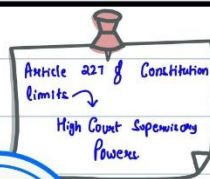 Article 227 of Constitution
limits
High Court Supervisory
Powers